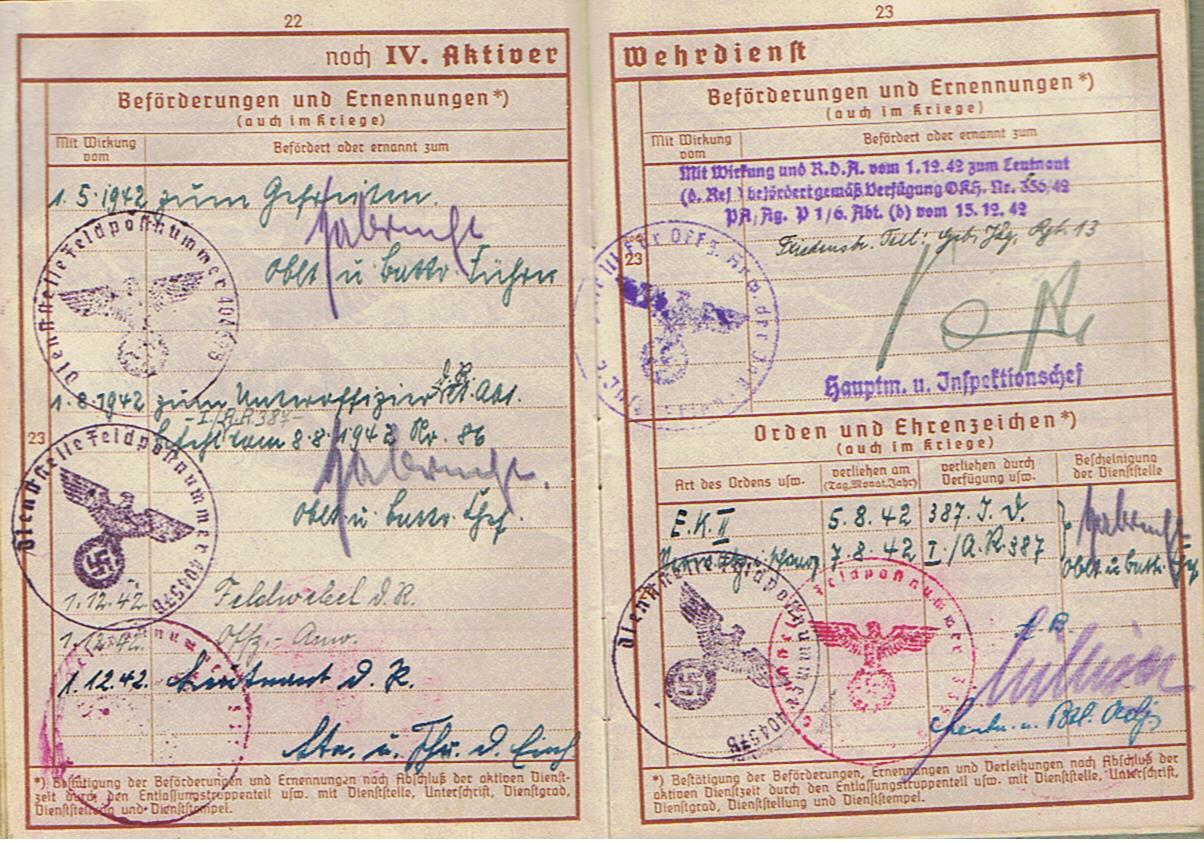 22
noch IV. Aktiver
Beförderungen und Ernennungen*)
(auch im Kriege)
Mit Wirkung vom
Befördert oder ernannt zum
1.5.1942 zum Gefreiten.
Oblt u. Battr. Führer
Dienststelle Feldpostnummer 40457B
1.8.1942 zum Unteroffizier d.R.
I./A.R. 387
Befehl vom 8.8.1942 Nr. 86
23
Oblt. u. Battr. Chef.
Dienststelle Feldpostnummer 40457B
1.12.42. Feldwebel d.R.
1.12.42. Offz.-Anw.
1.12.42. Leutnant d.R.
*) Bestätigung der Beförderungen und Ernennungen nach Abschluß der aktiven Dienst-
zeit durch den Entlassungstruppenteil usw. mit Dienststelle, Unterschrift, Dienstgrad,
Dienststellung und Dienststempel.
23
Wehrdienst
Beförderungen und Ernennungen*)
(auch im Kriege)
Mit Wirkung vom
Befördert oder ernannt zum
Mit Wirkung und R.D.A. vom 1.12.42 zum Leutnant
(d. Res.) befördert gemäß Verfügung OKH. Nr. 356/42
PA, Ag. P 1/6. Abt. (b) vom 15.12.42
Jäg. Rgt. 13
23
Hauptm. u. Inspektionschef
Orden und Ehrenzeichen*)
(auch im Kriege)
Art des Ordens usw.
verliehen am (Tag, Monat, Jahr)
verliehen durch Verfügung usw.
Bescheinigung der Dienststelle
E.K. II 5.8.42 387. I.D.
7.8.42 I./A.R. 387
Oblt. u. Battr. Chef
Dienststelle Feldpostnummer 40457B
*) Bestätigung der Beförderungen, Ernennungen und Verleihungen nach Abschluß der
aktiven Dienstzeit durch den Entlassungstruppenteil usw. mit Dienststelle, Unterschrift,
Dienstgrad, Dienststellung und Dienststempel.